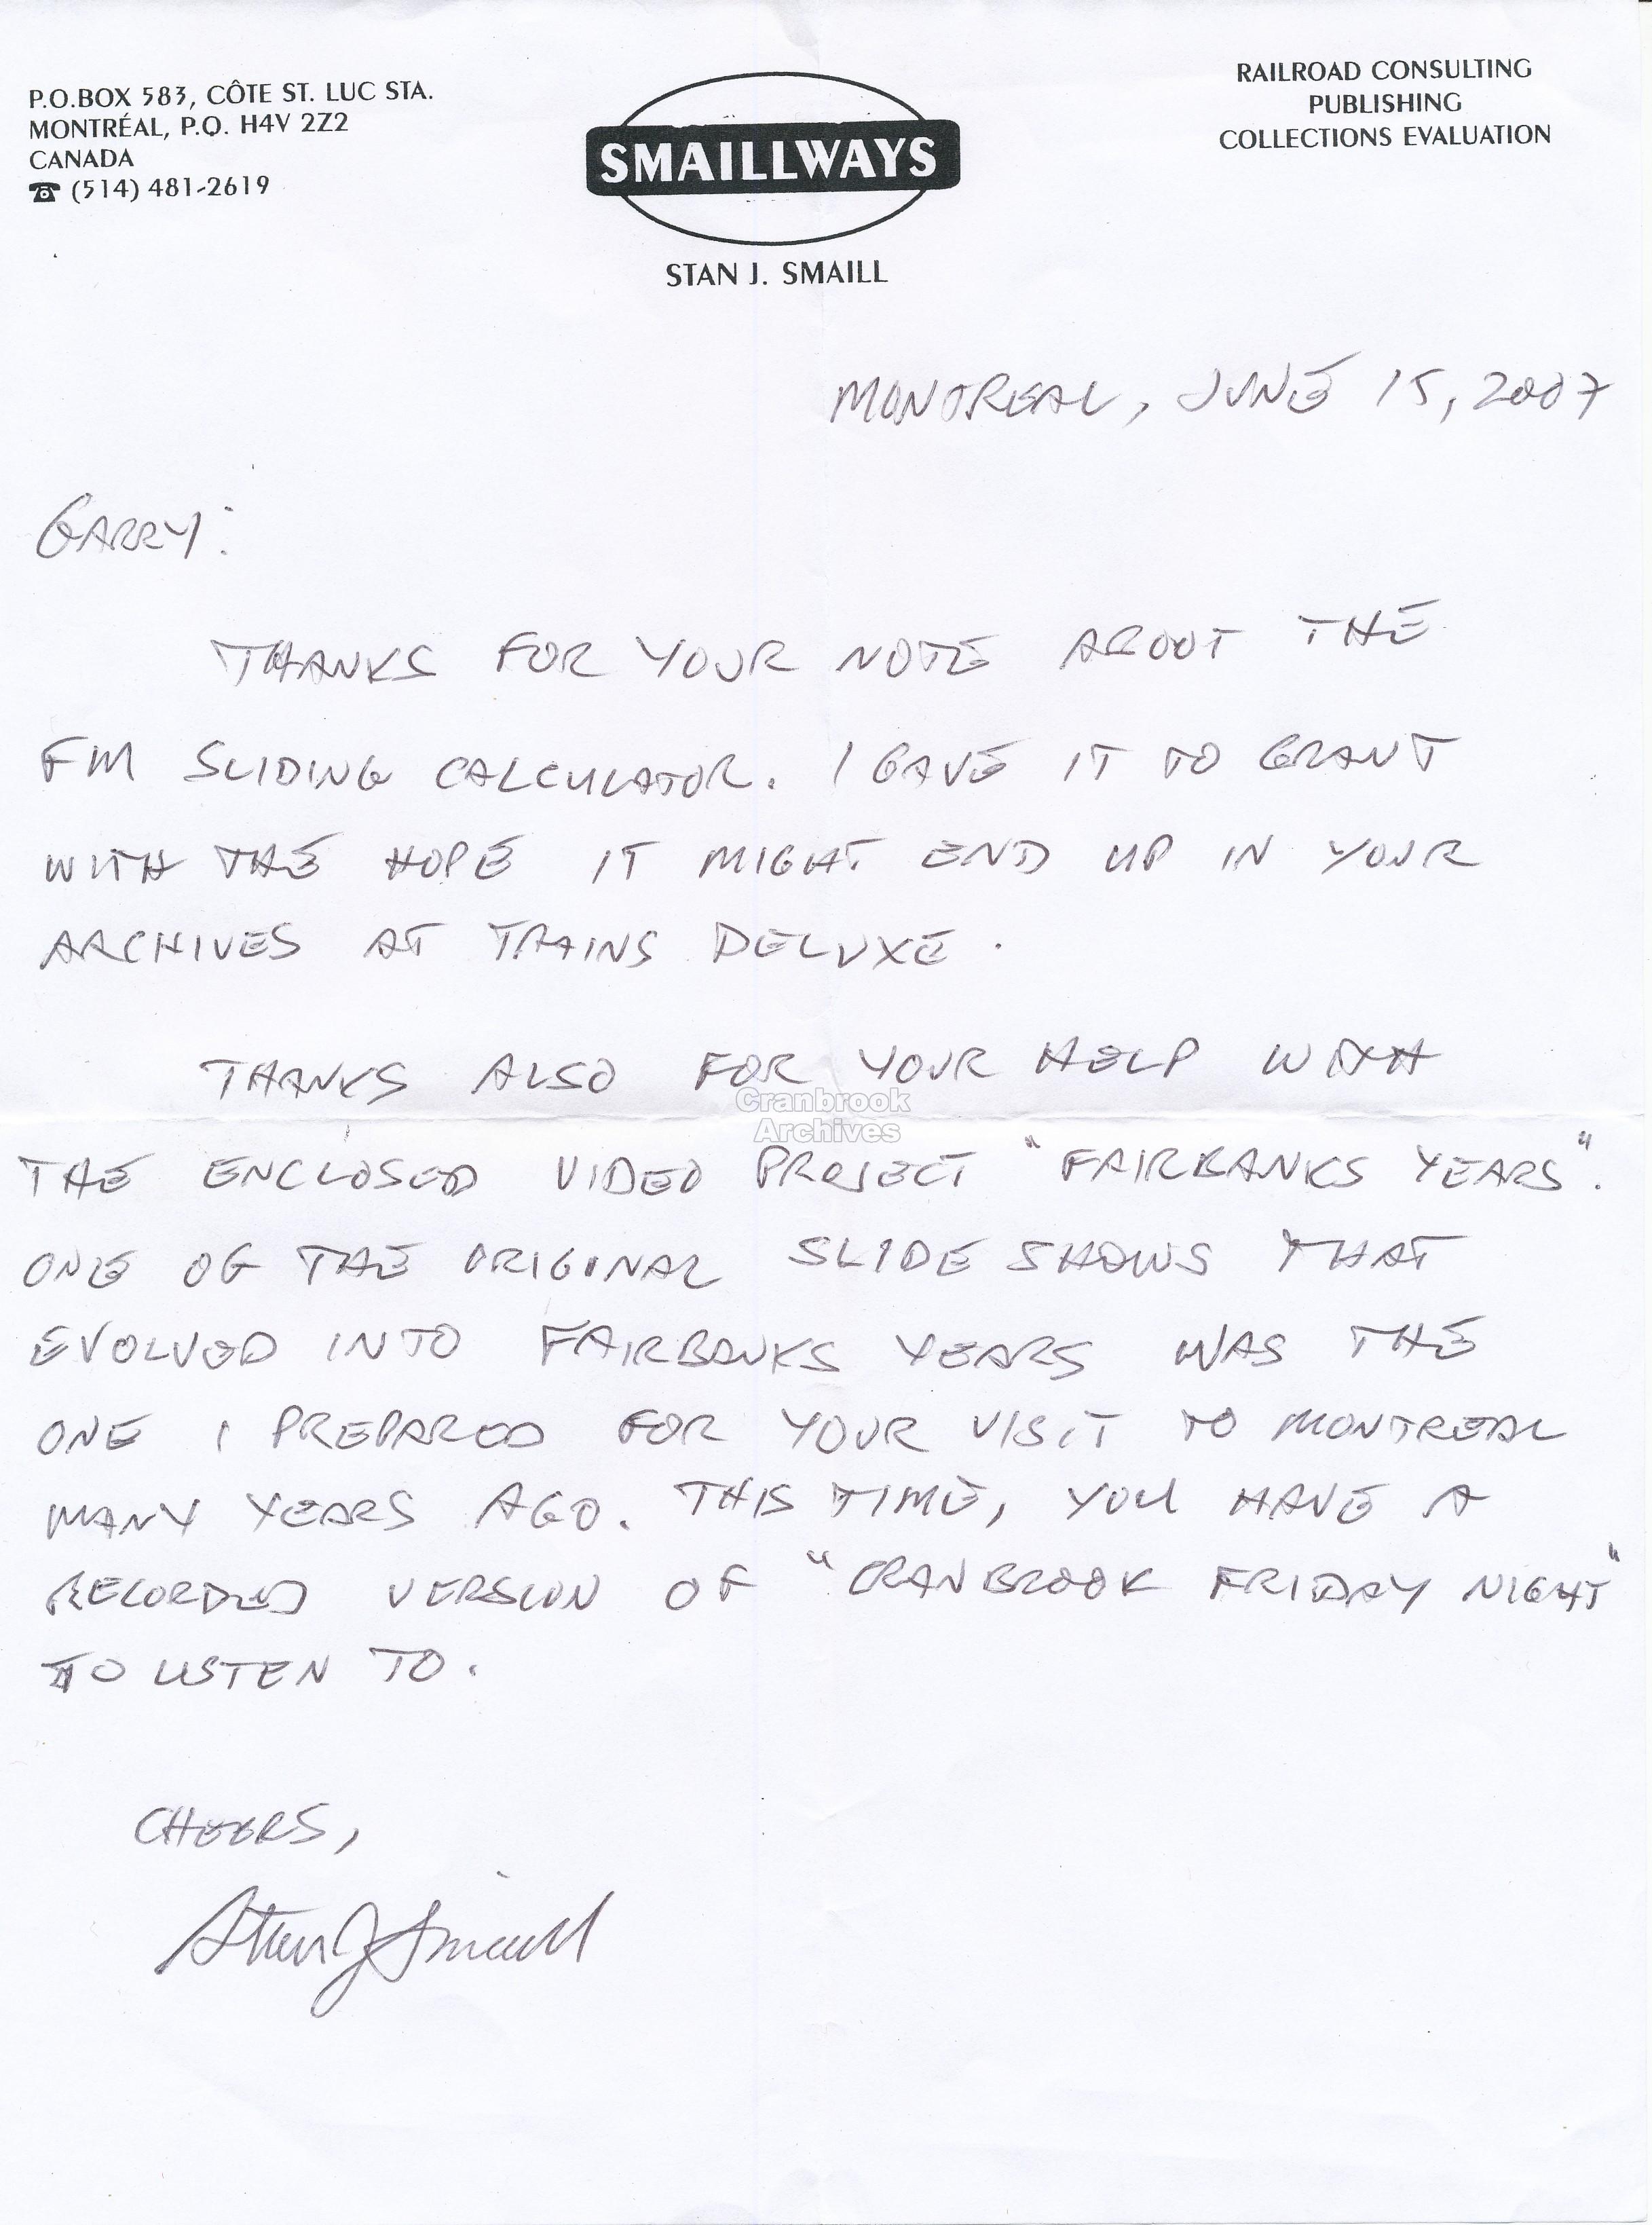 P.O.BOX 583, CÔTE ST. LUC STA.
MONTRÉAL, P.Q. H4V 2Z2
CANADA
☎ (514) 481-2619
SMAILLWAYS
STAN J. SMAILL
RAILROAD CONSULTING
PUBLISHING
COLLECTIONS EVALUATION
MONTREAL, JUNE 15, 2007
GARRY:
THANKS FOR YOUR NOTE ABOUT THE
FM SLIDING CALCULATOR. I GAVE IT TO GRANT
WITH THE HOPE IT MIGHT END UP IN YOUR
ARCHIVES AT TRAINS DELUXE.
THANKS ALSO FOR YOUR HELP WITH
Cranbrook
Archives
THE ENCLOSED VIDEO PROJECT "FAIRBANKS YEARS".
ONE OG THE ORIGINAL SLIDE SHOWS THAT
EVOLVED INTO FAIRBANKS YEARS WAS THE
ONE I PREPARED FOR YOUR VISIT TO MONTREAL
MANY YEARS AGO. THIS TIME, YOU HAVE A
RECORDED VERSION OF "CRANBROOK FRIDAY NIGHT"
TO LISTEN TO.
CHEERS,
Stan J Smaill